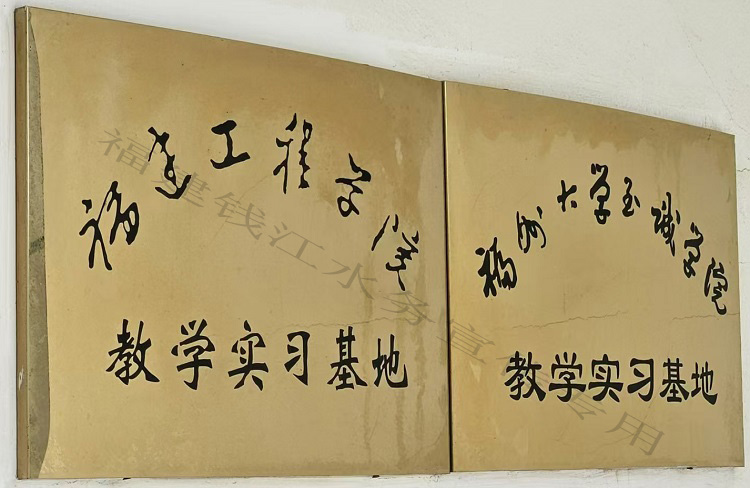 福建工程学院
教学实习基地
福州大学至诚学院
教学实习基地
福建钱江水务宣传专用